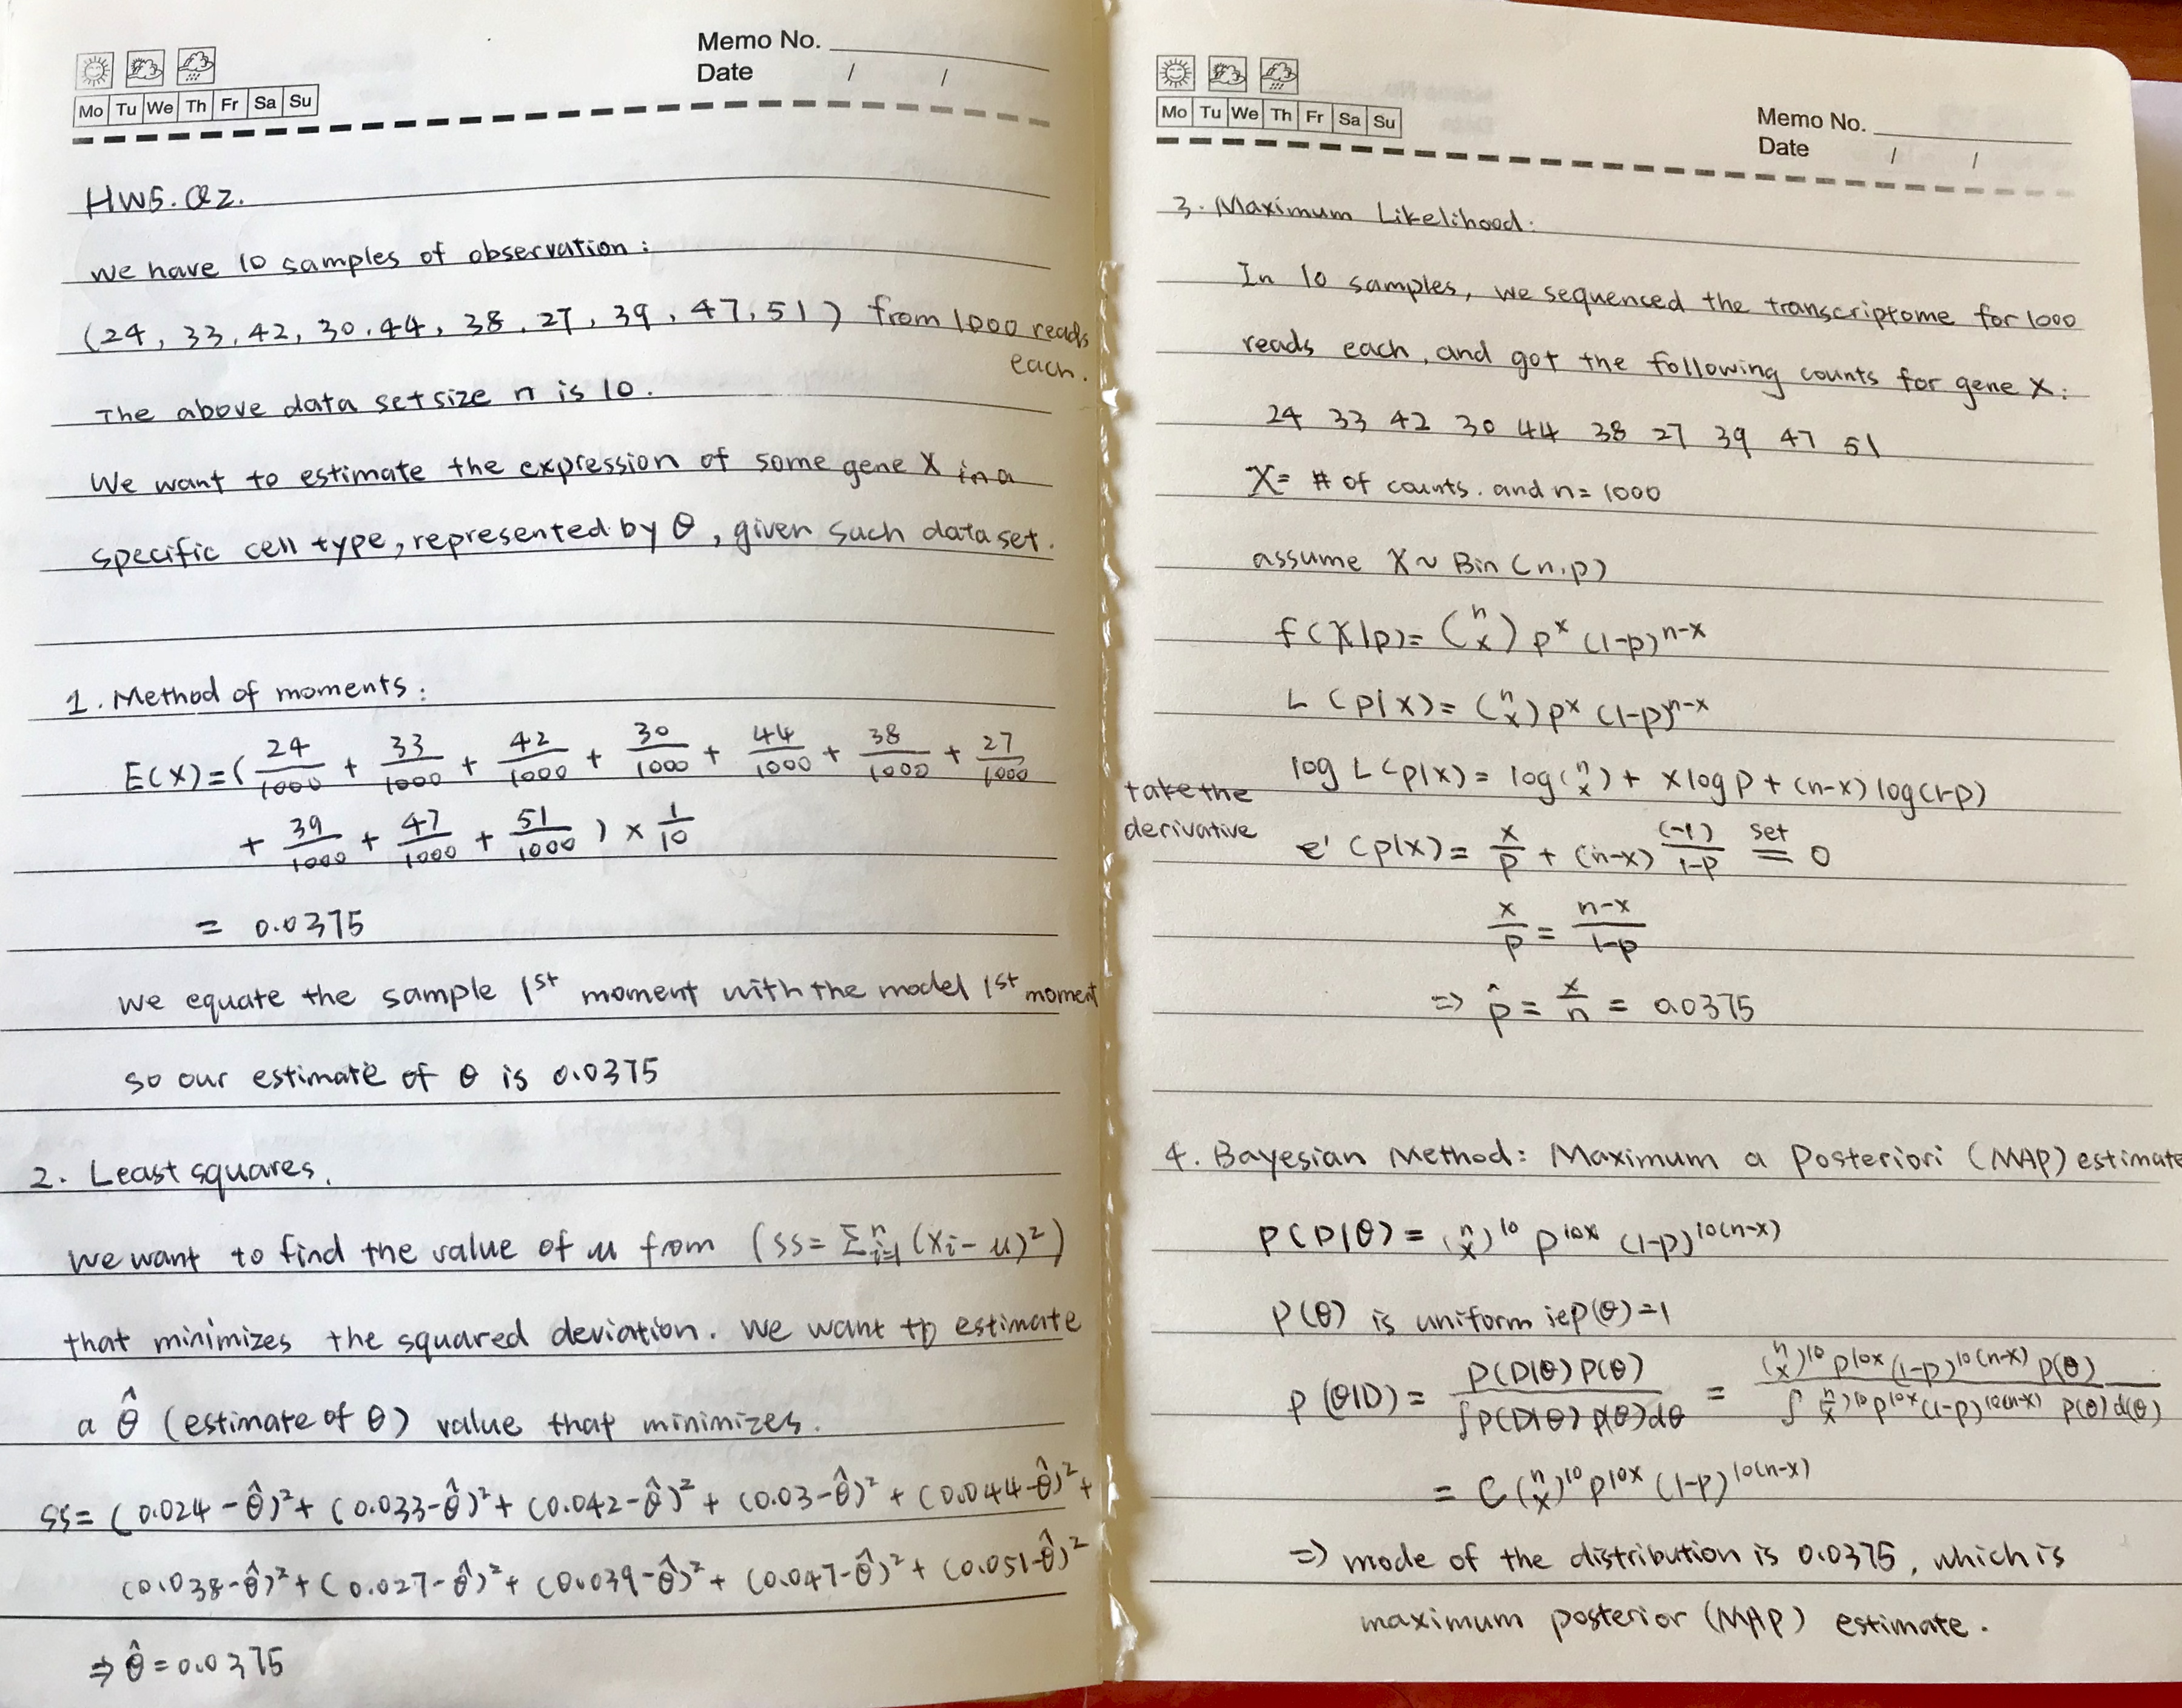 Memo No.
Date / /
Mo Tu We Th Fr Sa Su
HW5. Q2.
We have 10 samples of observation:
(24, 33, 42, 30, 44, 38, 27, 39, 47, 51) from 1000 reads
each.
The above data set size n is 10.
We want to estimate the expression of some gene X in a
specific cell type, represented by θ, given such data set.
1. Method of moments:
E(X)=( 24/1000 + 33/1000 + 42/1000 + 30/1000 + 44/1000 + 38/1000 + 27/1000
+ 39/1000 + 47/1000 + 51/1000 ) × 1/10
= 0.0375
We equate the sample 1st moment with the model 1st moment
so our estimate of θ is 0.0375
2. Least squares.
We want to find the value of u from (SS= Σⁿᵢ₌₁ (xi - u)²)
that minimizes the squared deviation. We want to estimate
a θ̂ (estimate of θ) value that minimizes.
SS= (0.024 - θ̂)² + (0.033-θ̂)² + (0.042-θ̂)² + (0.03-θ̂)² + (0.044-θ̂)² +
(0.038-θ̂)² + (0.027-θ̂)² + (0.039-θ̂)² + (0.047-θ̂)² + (0.051-θ̂)²
⇒ θ̂ = 0.0375
Mo Tu We Th Fr Sa Su
Memo No.
Date / /
3. Maximum Likelihood:
In 10 samples, we sequenced the transcriptome for 1000
reads each, and got the following counts for gene X:
24 33 42 30 44 38 27 39 47 51
X= # of counts. and n= 1000
assume X ~ Bin(n,p)
f(X|p)= (n x) p^x (1-p)^(n-x)
L(p|x)= (n x) p^x (1-p)^(n-x)
log L(p|x) = log(n x) + x log p + (n-x) log(1-p)
take the
derivative
e'(p|x) = x/p + (n-x) (-1)/(1-p) set = 0
x/p = (n-x)/(1-p)
⇒ p̂ = x/n = 0.0375
4. Bayesian Method: Maximum a Posteriori (MAP) estimate
P(D|θ) = (n x)^10 p^10x (1-p)^10(n-x)
P(θ) is uniform ie p(θ)=1
P(θ|D) = P(D|θ) P(θ) / ∫P(D|θ) P(θ)dθ = (n x)^10 p^10x (1-p)^10(n-x) P(θ) / ∫ (n x)^10 p^10x (1-p)^10(n-x) P(θ) d(θ)
= C (n x)^10 p^10x (1-p)^10(n-x)
⇒ mode of the distribution is 0.0375, which is
maximum posterior (MAP) estimate.